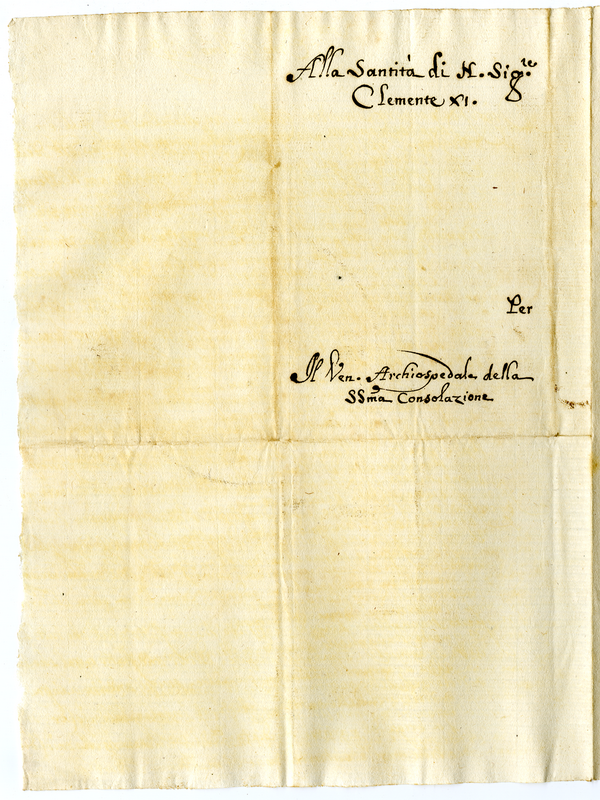 Alla Santità di N. Sig.re
Clemente XI.
Per
Il Ven. Archiospedale della
SSma Consolazione